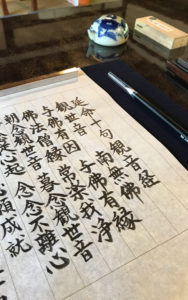 延命十句觀音経
觀世音 南無佛
与佛有因 与佛有縁
佛法僧縁 常楽我浄
朝念觀世音 暮念觀世音
念念從心起 念念不離心
願成就